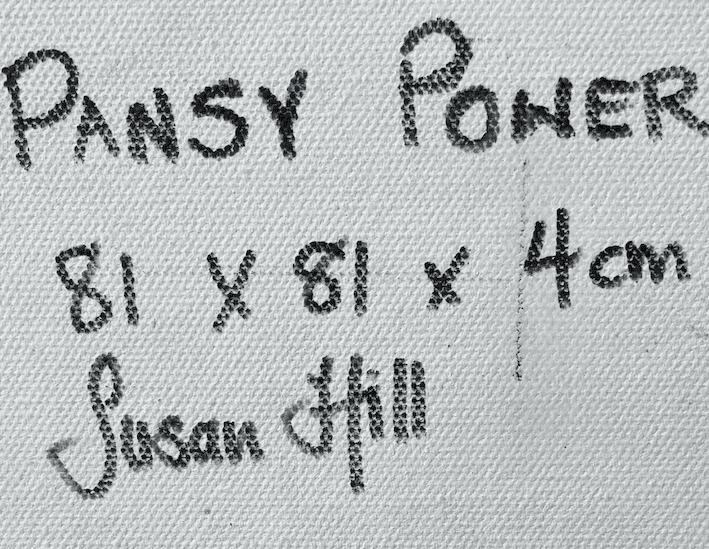 PANSY POWER
81 x 81 x 4cm
Susan Hill